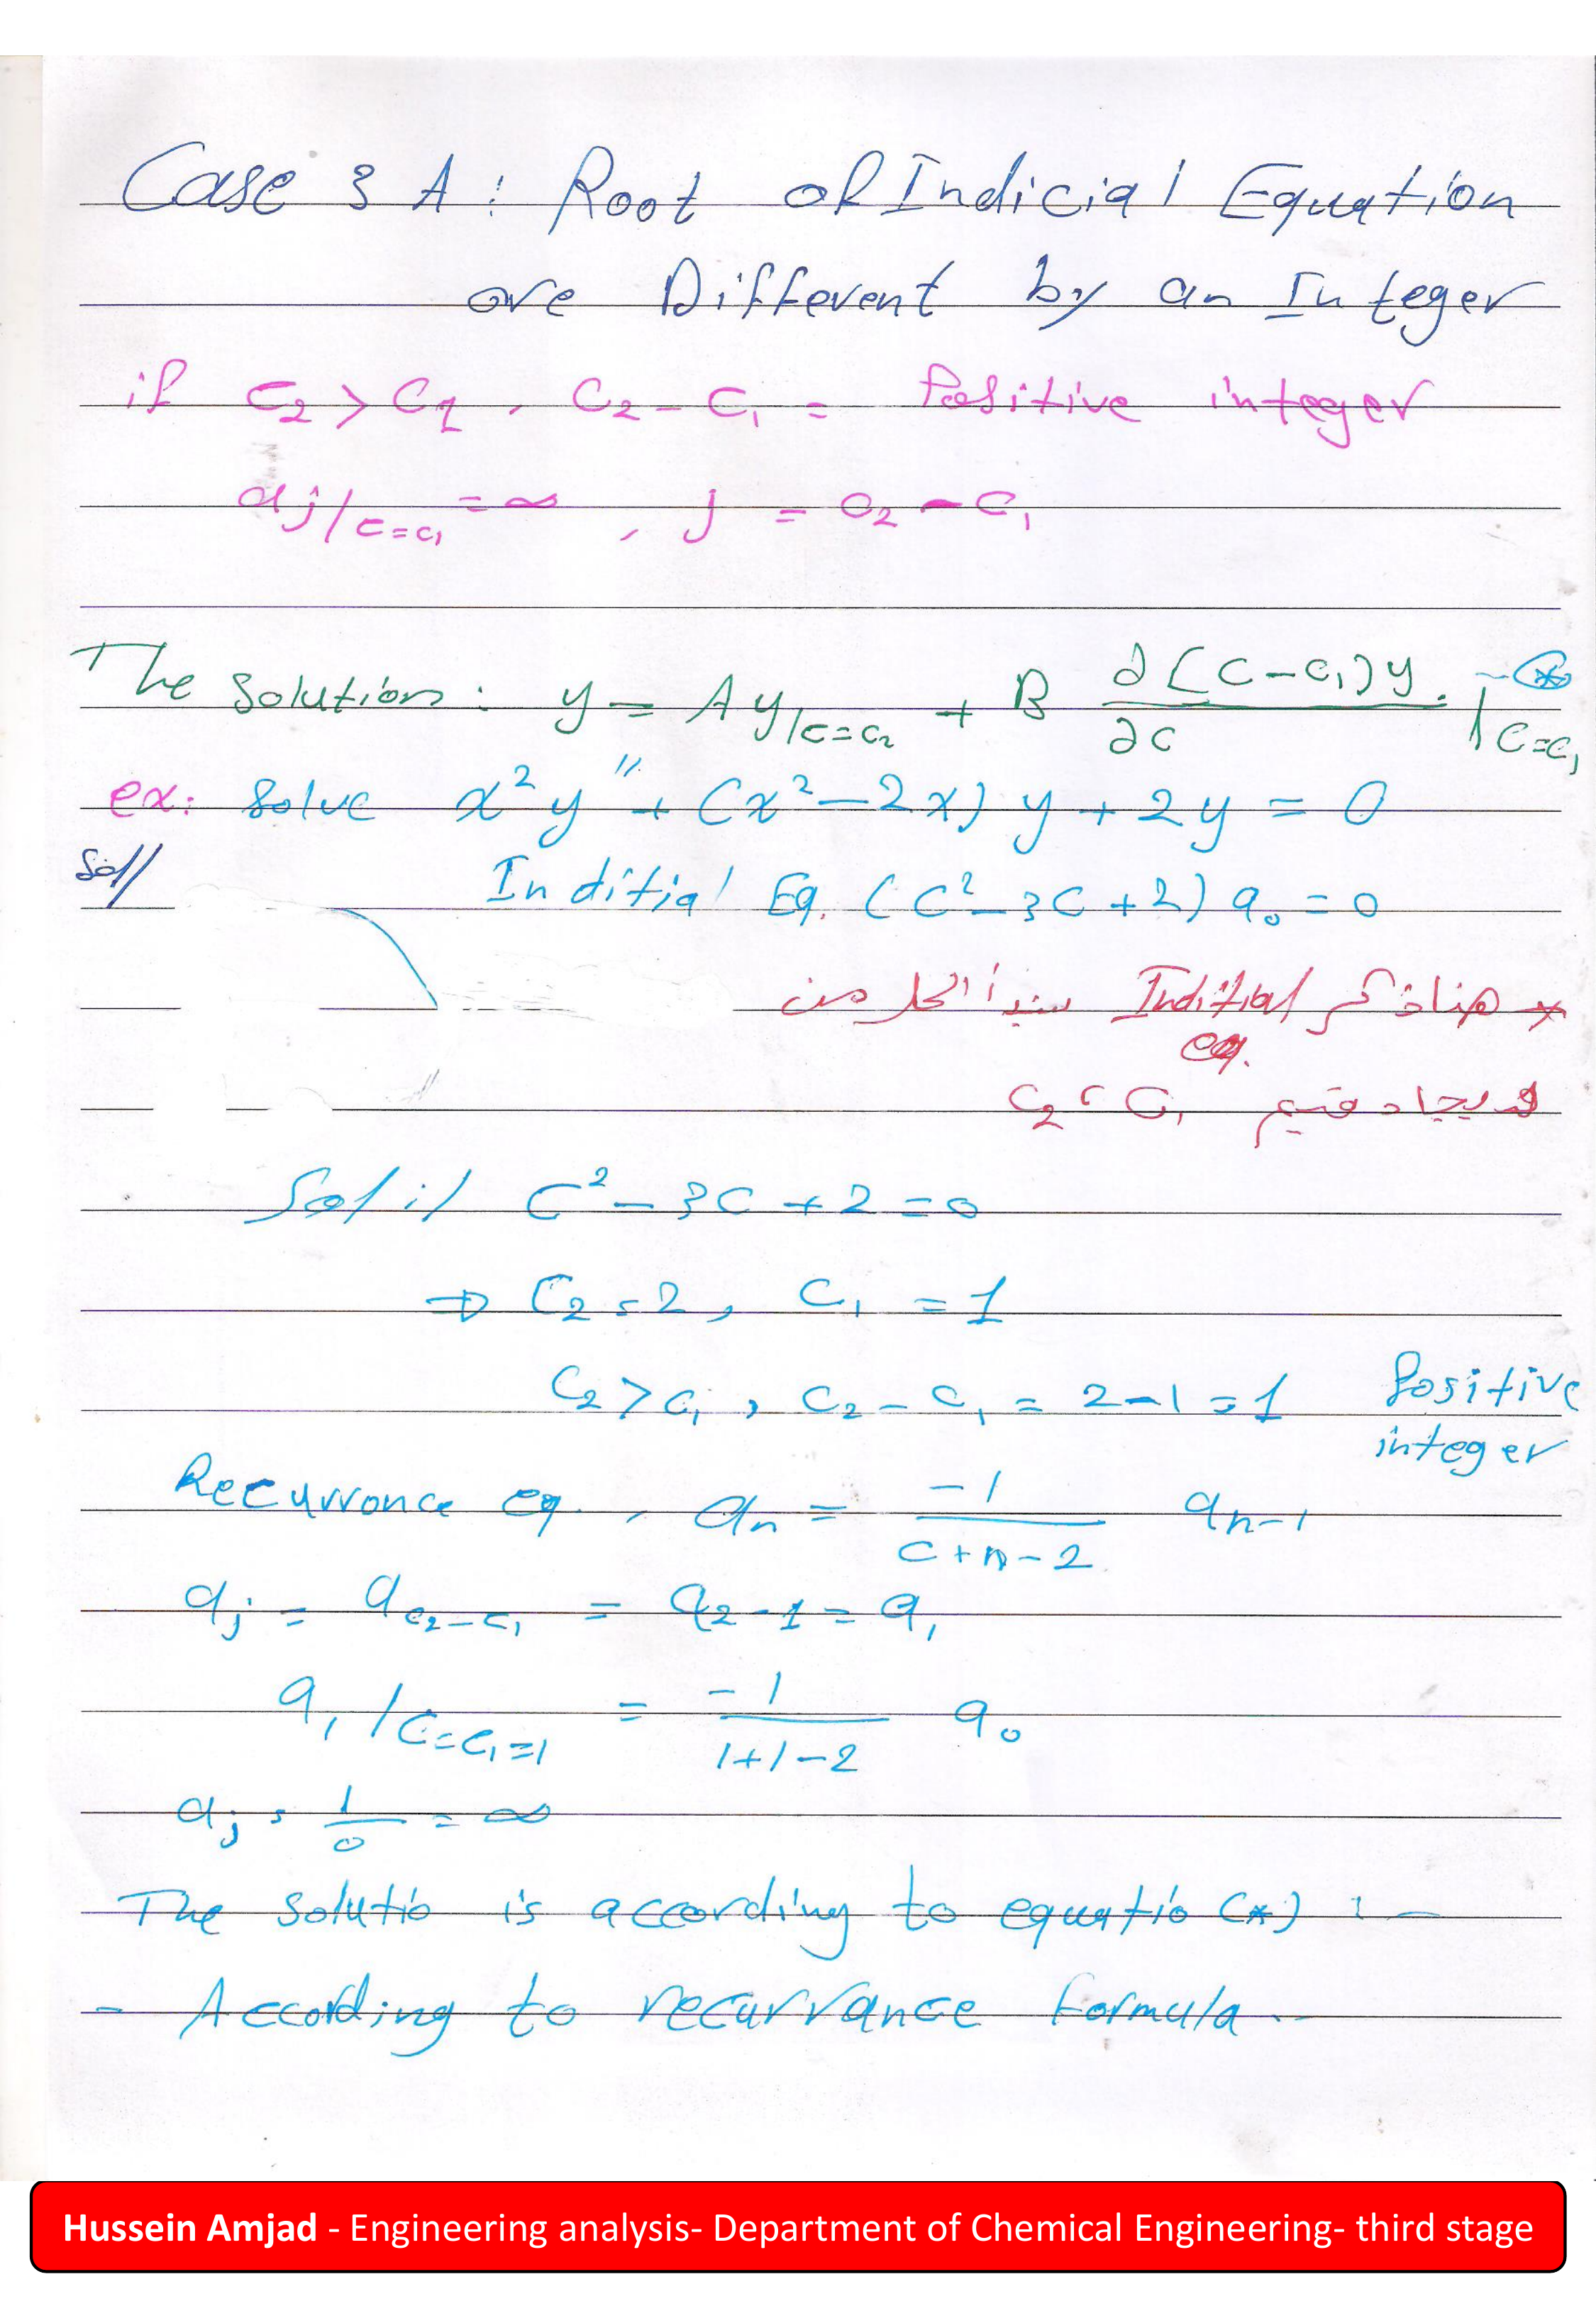 Case 3 A : Root of Indicial Equation
are Different by an Integer
if c₂ > c₁ , c₂ - c₁ = Positive integer
aj/c=c₁ = ∞ , j = c₂ - c₁
The Solution : y = A y/c=c₂ + B ∂(c-c₁)y/∂c |c=c₁ - (*)
ex: Solve x² y" + (x² - 2x) y + 2y = 0
Sol/
Inditial Eq. (c² - 3c + 2) a₀ = 0
* هنا ذكر Inditial eq. سنبدأ الحل من
c₂ ، c₁
Sol :/ c² - 3c + 2 = 0
⇒ c₂ = 2 , c₁ = 1
c₂ > c₁ , c₂ - c₁ = 2 - 1 = 1 Positive integer
Recurronce eq. , an = -1/(c+n-2) an-1
aj = ac₂-c₁ = a2-1 = a₁
a₁ /c=c₁=1 = -1/(1+1-2) a₀
aj = 1/0 = ∞
The Solutio is according to equatio (*) : -
- According to recurrance formula..
Hussein Amjad - Engineering analysis- Department of Chemical Engineering- third stage